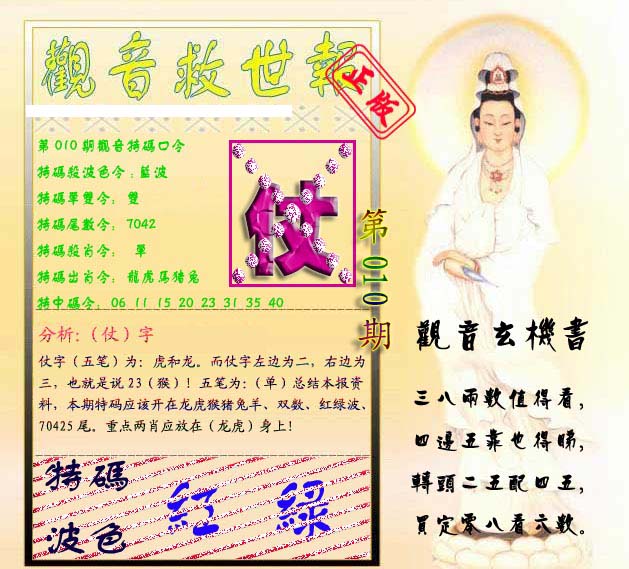 觀音救世報
正版
第010期觀音特碼口令
特碼殺波色令:藍波
特碼單雙令: 雙
特碼尾數令: 7042
特碼殺肖令: 單
特碼出肖令: 龍虎馬豬兔
特中碼令: 06 11 15 20 23 31 35 40
仗
第010期
分析:（仗）字
仗字（五笔）为：虎和龙。而仗字左边为二，右边为
三，也就是说23（猴）！五笔为：（单）总结本报资
料，本期特码应该开在龙虎猴猪兔羊、双数、红绿波、
70425尾。重点两肖应放在（龙虎）身上！
特碼
波色
紅 綠
觀音玄機書
三八兩數值得看，
四邊五靠也得睇，
轉頭二五配四五，
買定零八看六數。